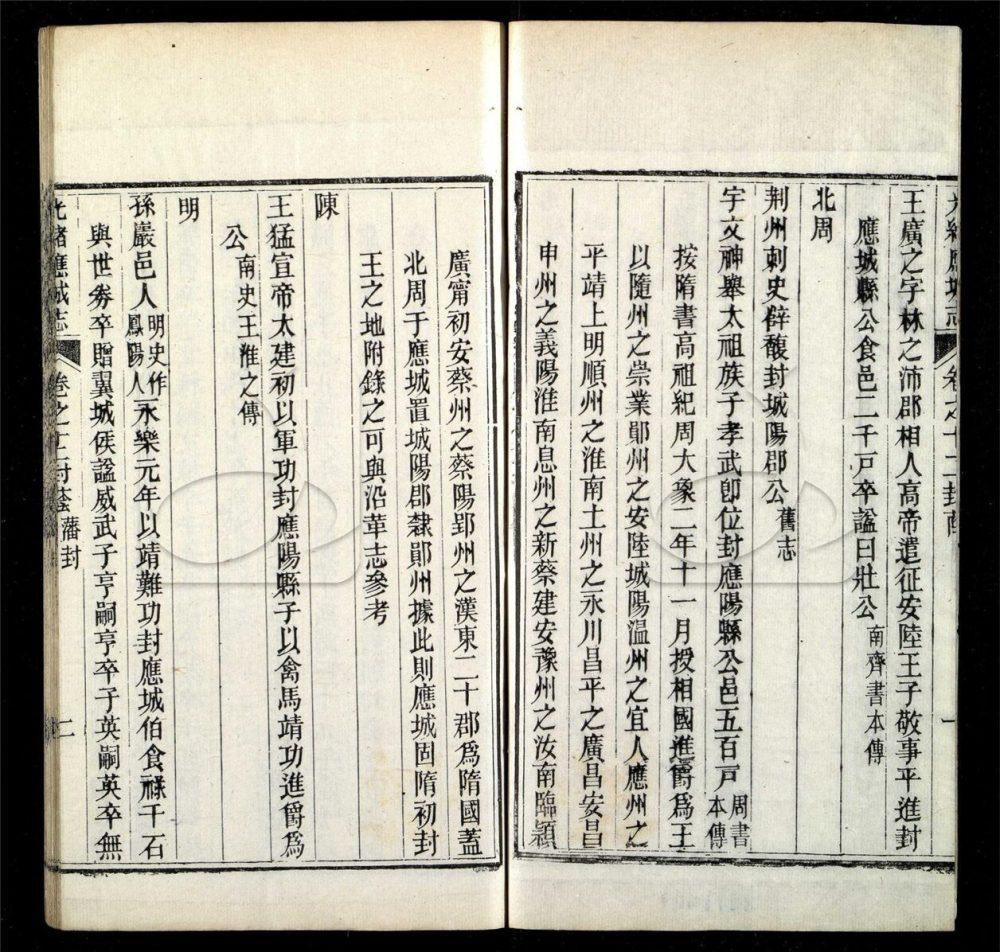 光緒應城志 卷之十二封蔭 一
王廣之字林之沛郡相人高帝遣征安陸王子敬事平進封
應城縣公食邑二千戸卒諡曰壯公南齊書本傳
北周
荆州刺史薛馥封城陽郡公舊志
宇文神舉太祖族子孝武卽位封應陽縣公邑五百戸周書本傳
按隋書高祖紀周大象二年十一月授相國進爵爲王
以隨州之崇業鄖州之安陸城陽温州之宜人應州之
平靖上明順州之淮南士州之永川昌平之廣昌安昌
申州之義陽淮南息州之新蔡建安豫州之汝南臨潁
廣甯初安蔡州之蔡陽郢州之漢東二十郡爲隋國蓋
北周于應城置城陽郡隸鄖州據此則應城固隋初封
王之地附錄之可與沿革志參考
陳
王猛宣帝太建初以軍功封應陽縣子以禽馬靖功進爵爲
公南史王淮之傳
明
孫巖邑人明史作鳳陽人永樂元年以靖難功封應城伯食祿千石
與世券卒贈翼城侯諡威武子亨嗣亨卒子英嗣英卒無
光緒應城志 卷之十二封蔭 藩封 二